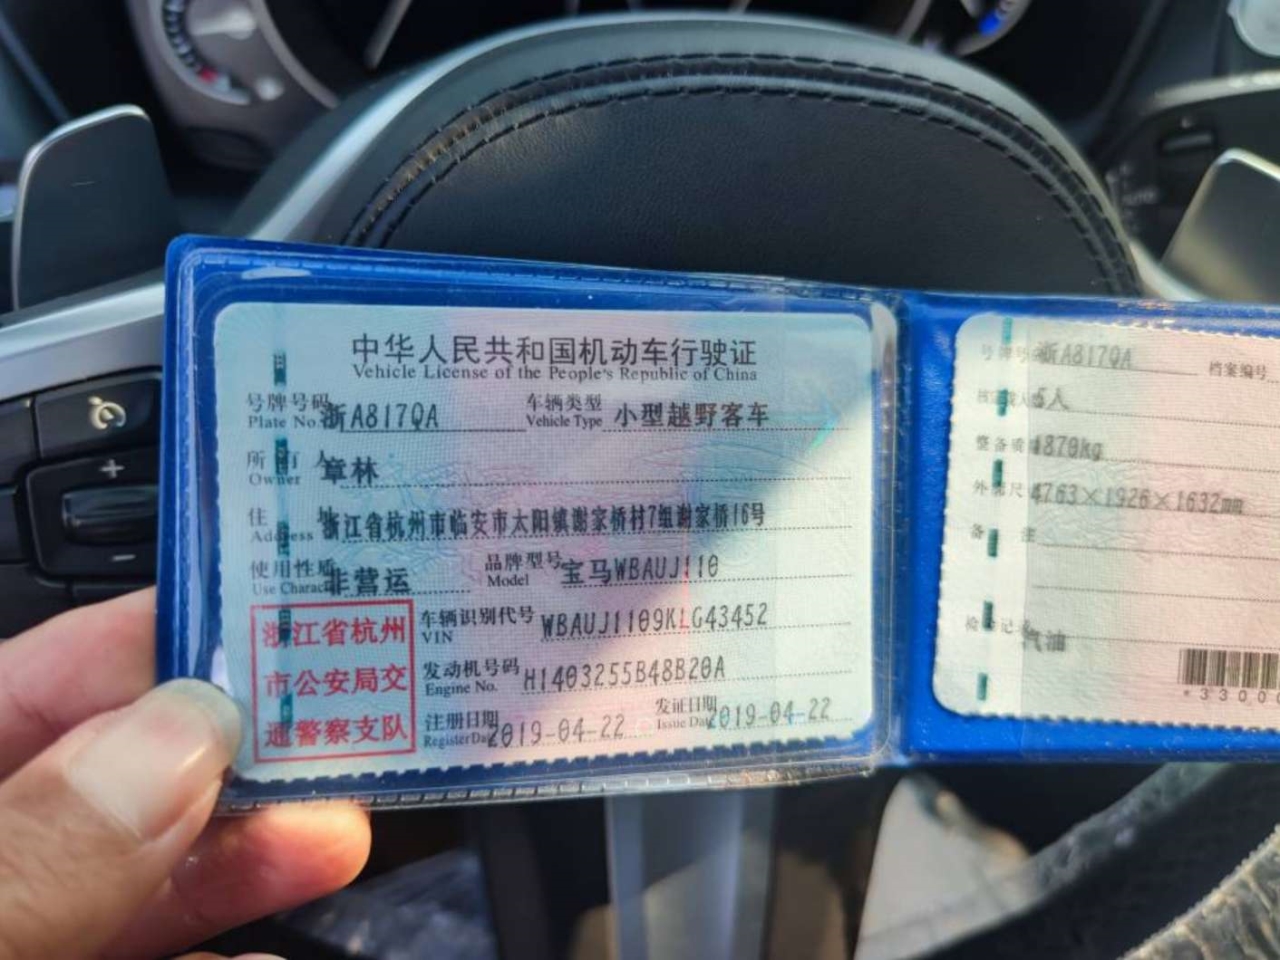 中华人民共和国机动车行驶证
Vehicle License of the People's Republic of China
号牌号码 浙A817QA 车辆类型 小型越野客车
Plate No. Vehicle Type
所有人 章林
Owner
住址 浙江省杭州市临安市太阳镇谢家桥村7组谢家桥16号
Address
使用性质 非营运 品牌型号 宝马WBAUJ110
Use Character Model
浙江省杭州
市公安局交
通警察支队
车辆识别代号 WBAUJ1109KLG43452
VIN
发动机号码 H1403255B48B20A
Engine No.
注册日期 2019-04-22 发证日期 2019-04-22
Register Date Issue Date
号牌号码 浙A817QA 档案编号
核定载人 5人
整备质量 1870kg
外廓尺寸 4763×1926×1632mm
备注
检验记录
汽油
*3300
+
−